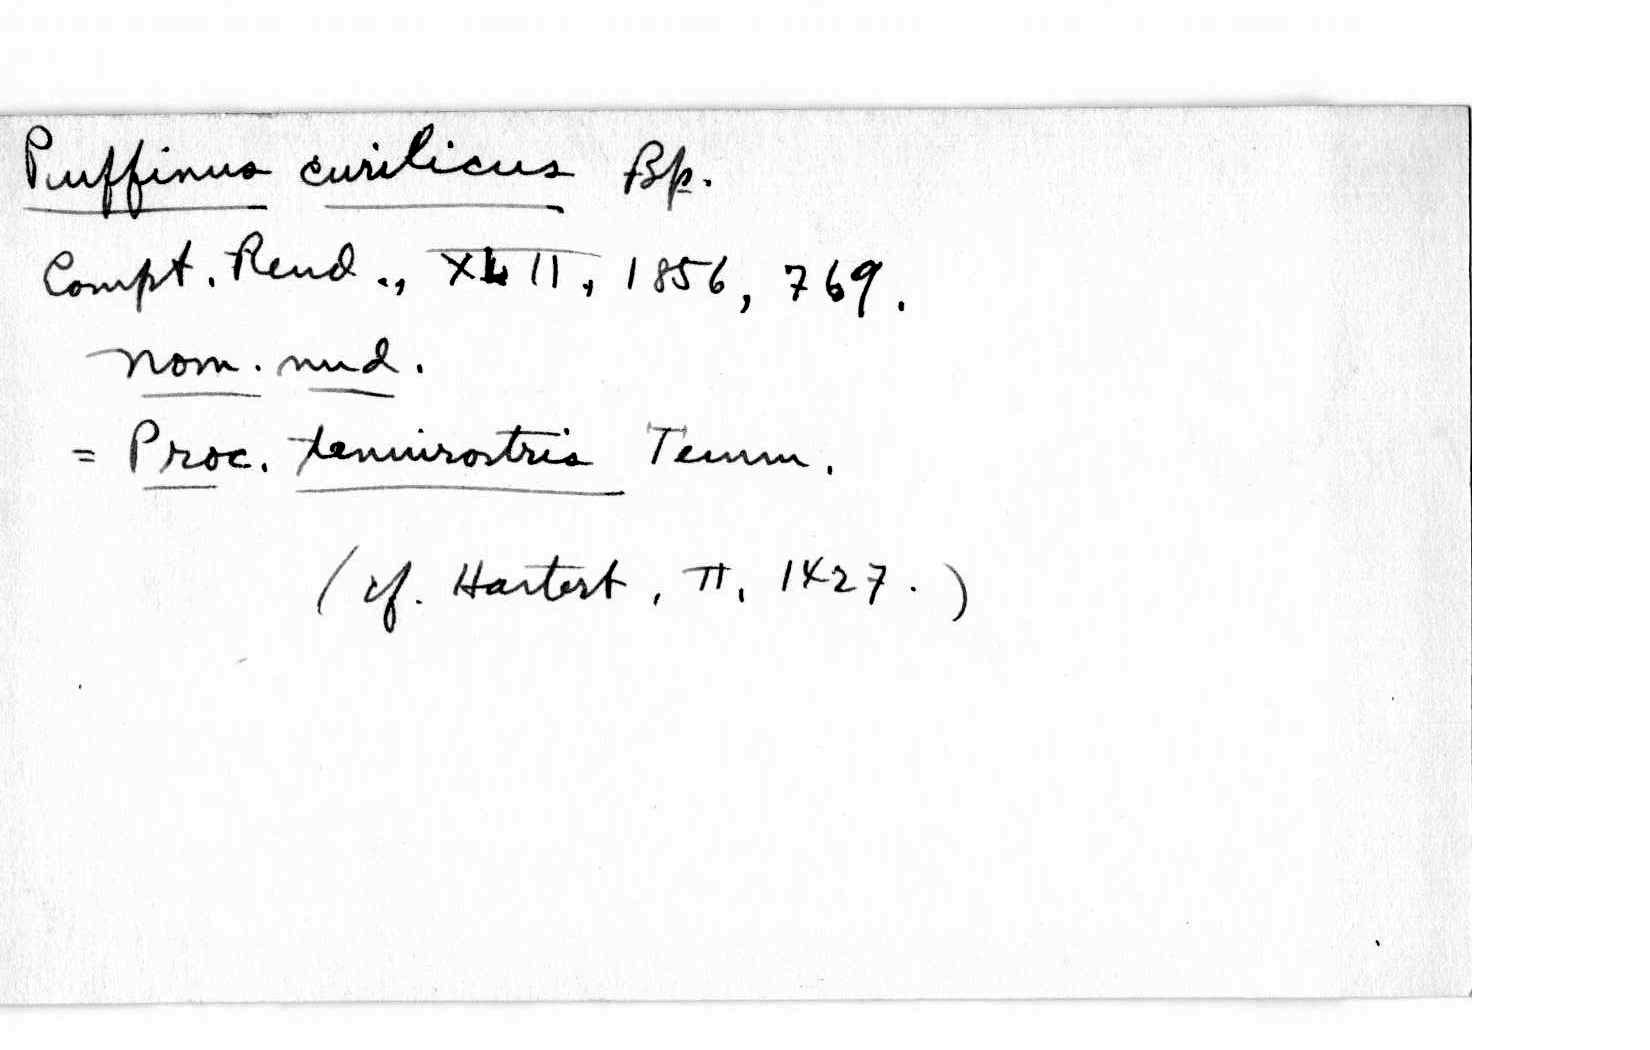 Puffinus curilicus Bp.
Compt. Rend., XLII, 1856, 769.
nom. nud.
= Proc. tenuirostris Temm.
(cf. Hartert, II, 1427.)